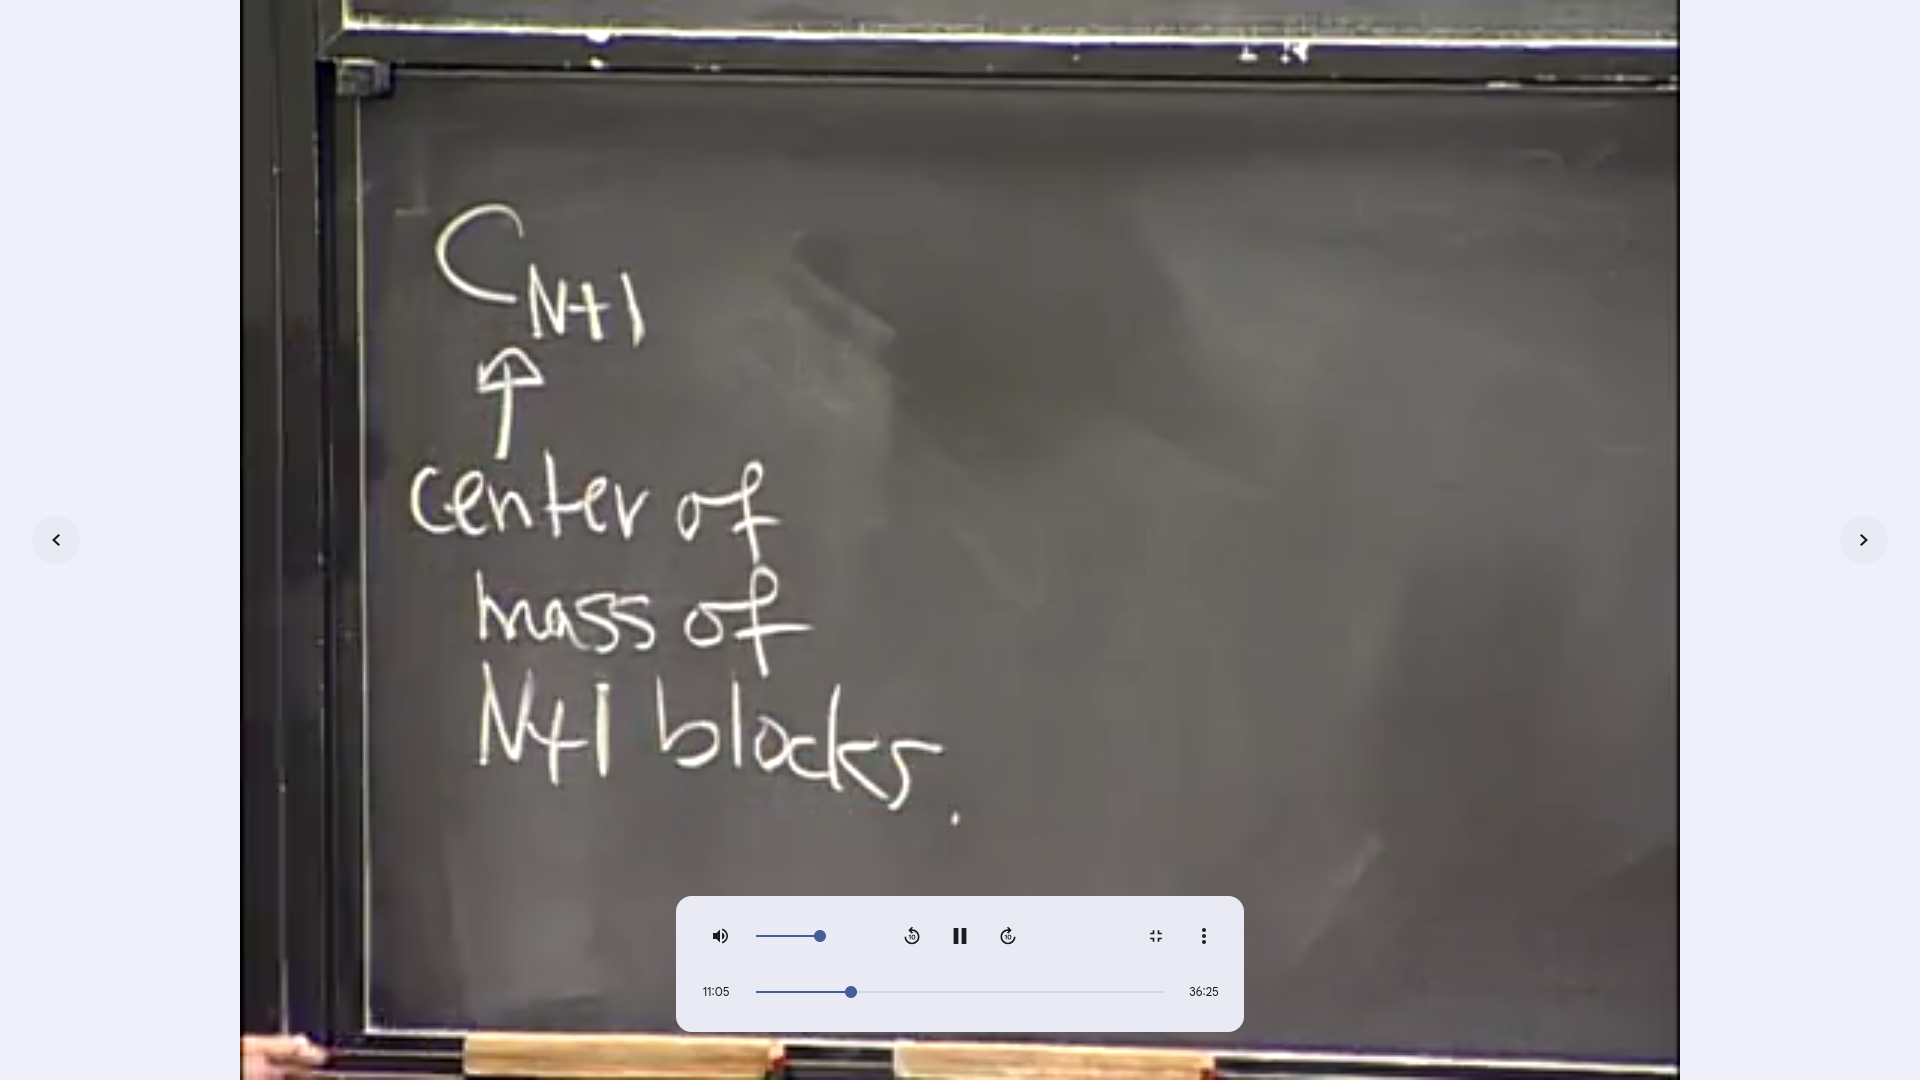 C_{N+1}
↑
center of
mass of
N+1 blocks.
10
10
11:05
36:25